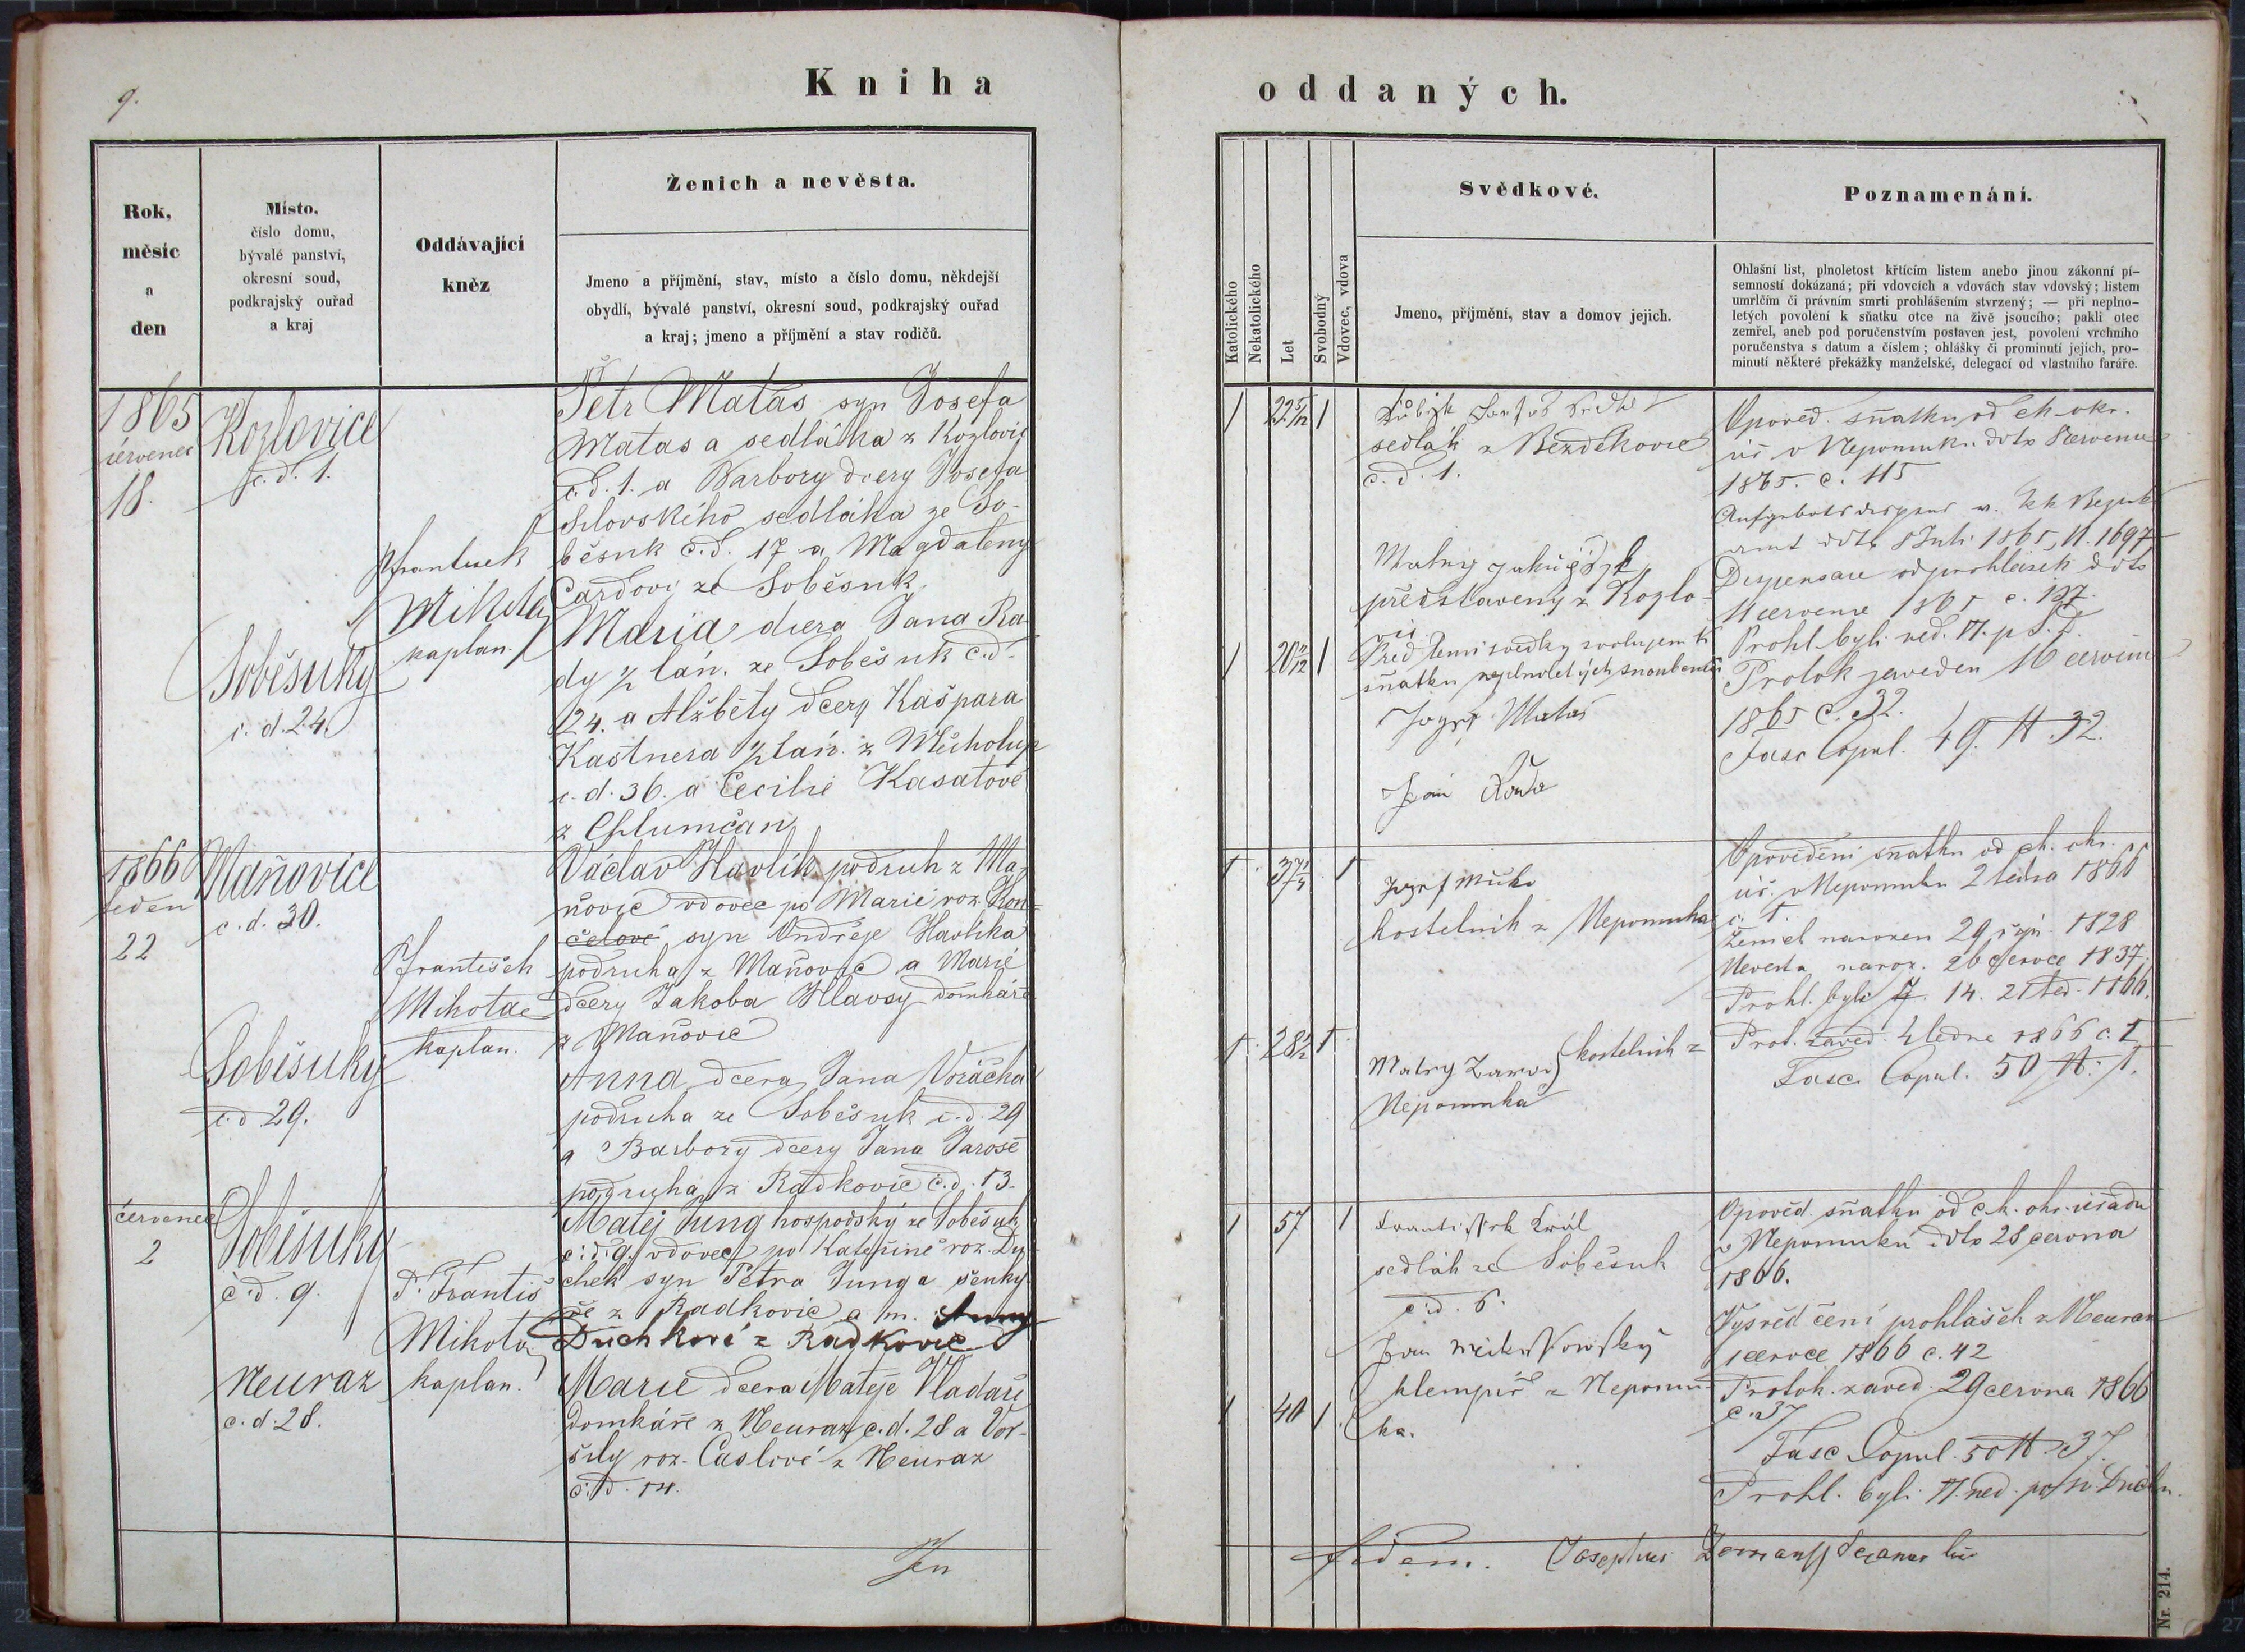 9.
Kniha
oddaných.
Rok,
měsíc
a
den
Místo,
číslo domu,
bývalé panství,
okresní soud,
podkrajský ouřad
a kraj
Oddávající
kněz
Ženich a nevěsta.
Jmeno a příjmění, stav, místo a číslo domu, někdejší
obydlí, bývalé panství, okresní soud, podkrajský ouřad
a kraj; jmeno a příjmění a stav rodičů.
Katolického
Nekatolického
Let
Svobodný
Vdovec, vdova
Svědkové.
Jmeno, příjmění, stav a domov jejich.
Poznamenání.
Ohlašní list, plnoletost křtícím listem anebo jinou zákonní pí-
semností dokázaná; při vdovcích a vdovách stav vdovský; listem
umrlčím či právním smrti prohlášením stvrzený; — při neplno-
letých povolení k sňatku otce na živě jsoucího; pakli otec
zemřel, aneb pod poručenstvím postaven jest, povolení vrchního
poručenstva s datum a číslem; ohlášky či prominutí jejich, pro-
minutí některé překážky manželské, delegací od vlastního faráře.
1865
červenec
18.
Kozlovice
č.d. 1.
Soběsuky
č. d. 24.
Mikota
kaplan.
Petr Matas syn Josefa
Matas a sedláka z Kozlovic
č.d. 1. a Barbory dcery Josefa
sedláka ze So-
běsuk č.d. 17 a Magdaleny
ze Soběsuk
Maria dcera Jana Ra
dy ½ lán. ze Soběsuk č.d.
24. a Alžběty dcery Kašpara
Kastnera ½ lán. z Měcholup
č. d. 36. a Cecilie Kasatové
z Chlumčan
1 22 5/12 1
sedlák z Bezděkovic
č. d. 1.
představený z Kozlo-
vic
1 20 1
Před těmi svědky svolujem k
sňatku neplnoletých snoubenců
Matas
Jan Rada
Opověd. sňatku od ck. okr.
úř. v Nepomuku ddto 8 července
1865. č. 115
amt ddto 8 Juli 1865, N. 1697
ddto
11 července 1865 č. 127.
Prohl. byli ned. II. p S. D.
Protok zaveden 16 července
1865 č. 32.
Fasc Copul. 49. N 32.
1866
leden
22
Maňovice
č. d. 30.
Soběsuky
č. d 29.
P. František
Mikota
kaplan.
Václav Havlík podruh z Ma-
ňovic vdovec po Marii roz. Kon-
čelové syn Ondřeje Havlíka
podruha z Maňovic a Marie
dcery Jakoba Hlavsy domkáře
z Maňovic
Anna dcera Jana Voráčka
podruha ze Soběsuk č. d. 29
a Barbory dcery Jana Jaroše
podruha z Radkovic č. d. 13.
1. 37 1
kostelník z Nepomuka
1. 28 1/2 1.
kostelník z
Nepomuka
Opovědění sňatku od ck. okr.
úř. v Nepomuku 2 ledna 1866
č. 1.
Ženich narozen 29 říj. 1828
Nevěsta naroz. 26 července 1837.
Prohl. byli 7. 14. 21 led. 1866.
Prot. zaved. 4 ledna 1866 č. 1
Fasc. Copul. 50 N. 1.
červenec
2
Soběsuky
č. d. 9.
Neuraz
č. d. 28.
P. Františ
Mikota
kaplan.
Matěj Jung hospodský ze Soběsuk
č. d. 9. vdovec po Kateřině roz. Du
chek syn Petra Junga šenký-
ře z Radkovic a m. Anny
Duchkové z Radkovic
Marie dcera Matěje Vladaře
domkáře z Neuraz č. d. 28 a Vor-
šily roz. Časlivé z Neuraz
č. d. 14.
1 57 1
František Král
sedlák ze Soběsuk
č. d. 6.
Jan
klempíř z Nepomu-
ka.
1 40 1.
Opověd. sňatku od c. k. okr. úřadu
v Nepomuku ddto 28 června
1866.
Vysvědčení prohlášek z Neuraz
1 července 1866 č. 42
Protok. zaved. 29 června 1866
č. 37
Fasc Copul. 50 N. 37.
Prohl. byli II. ned. po sv. Duchu.
In
fidem. Josephus
Nr. 214.